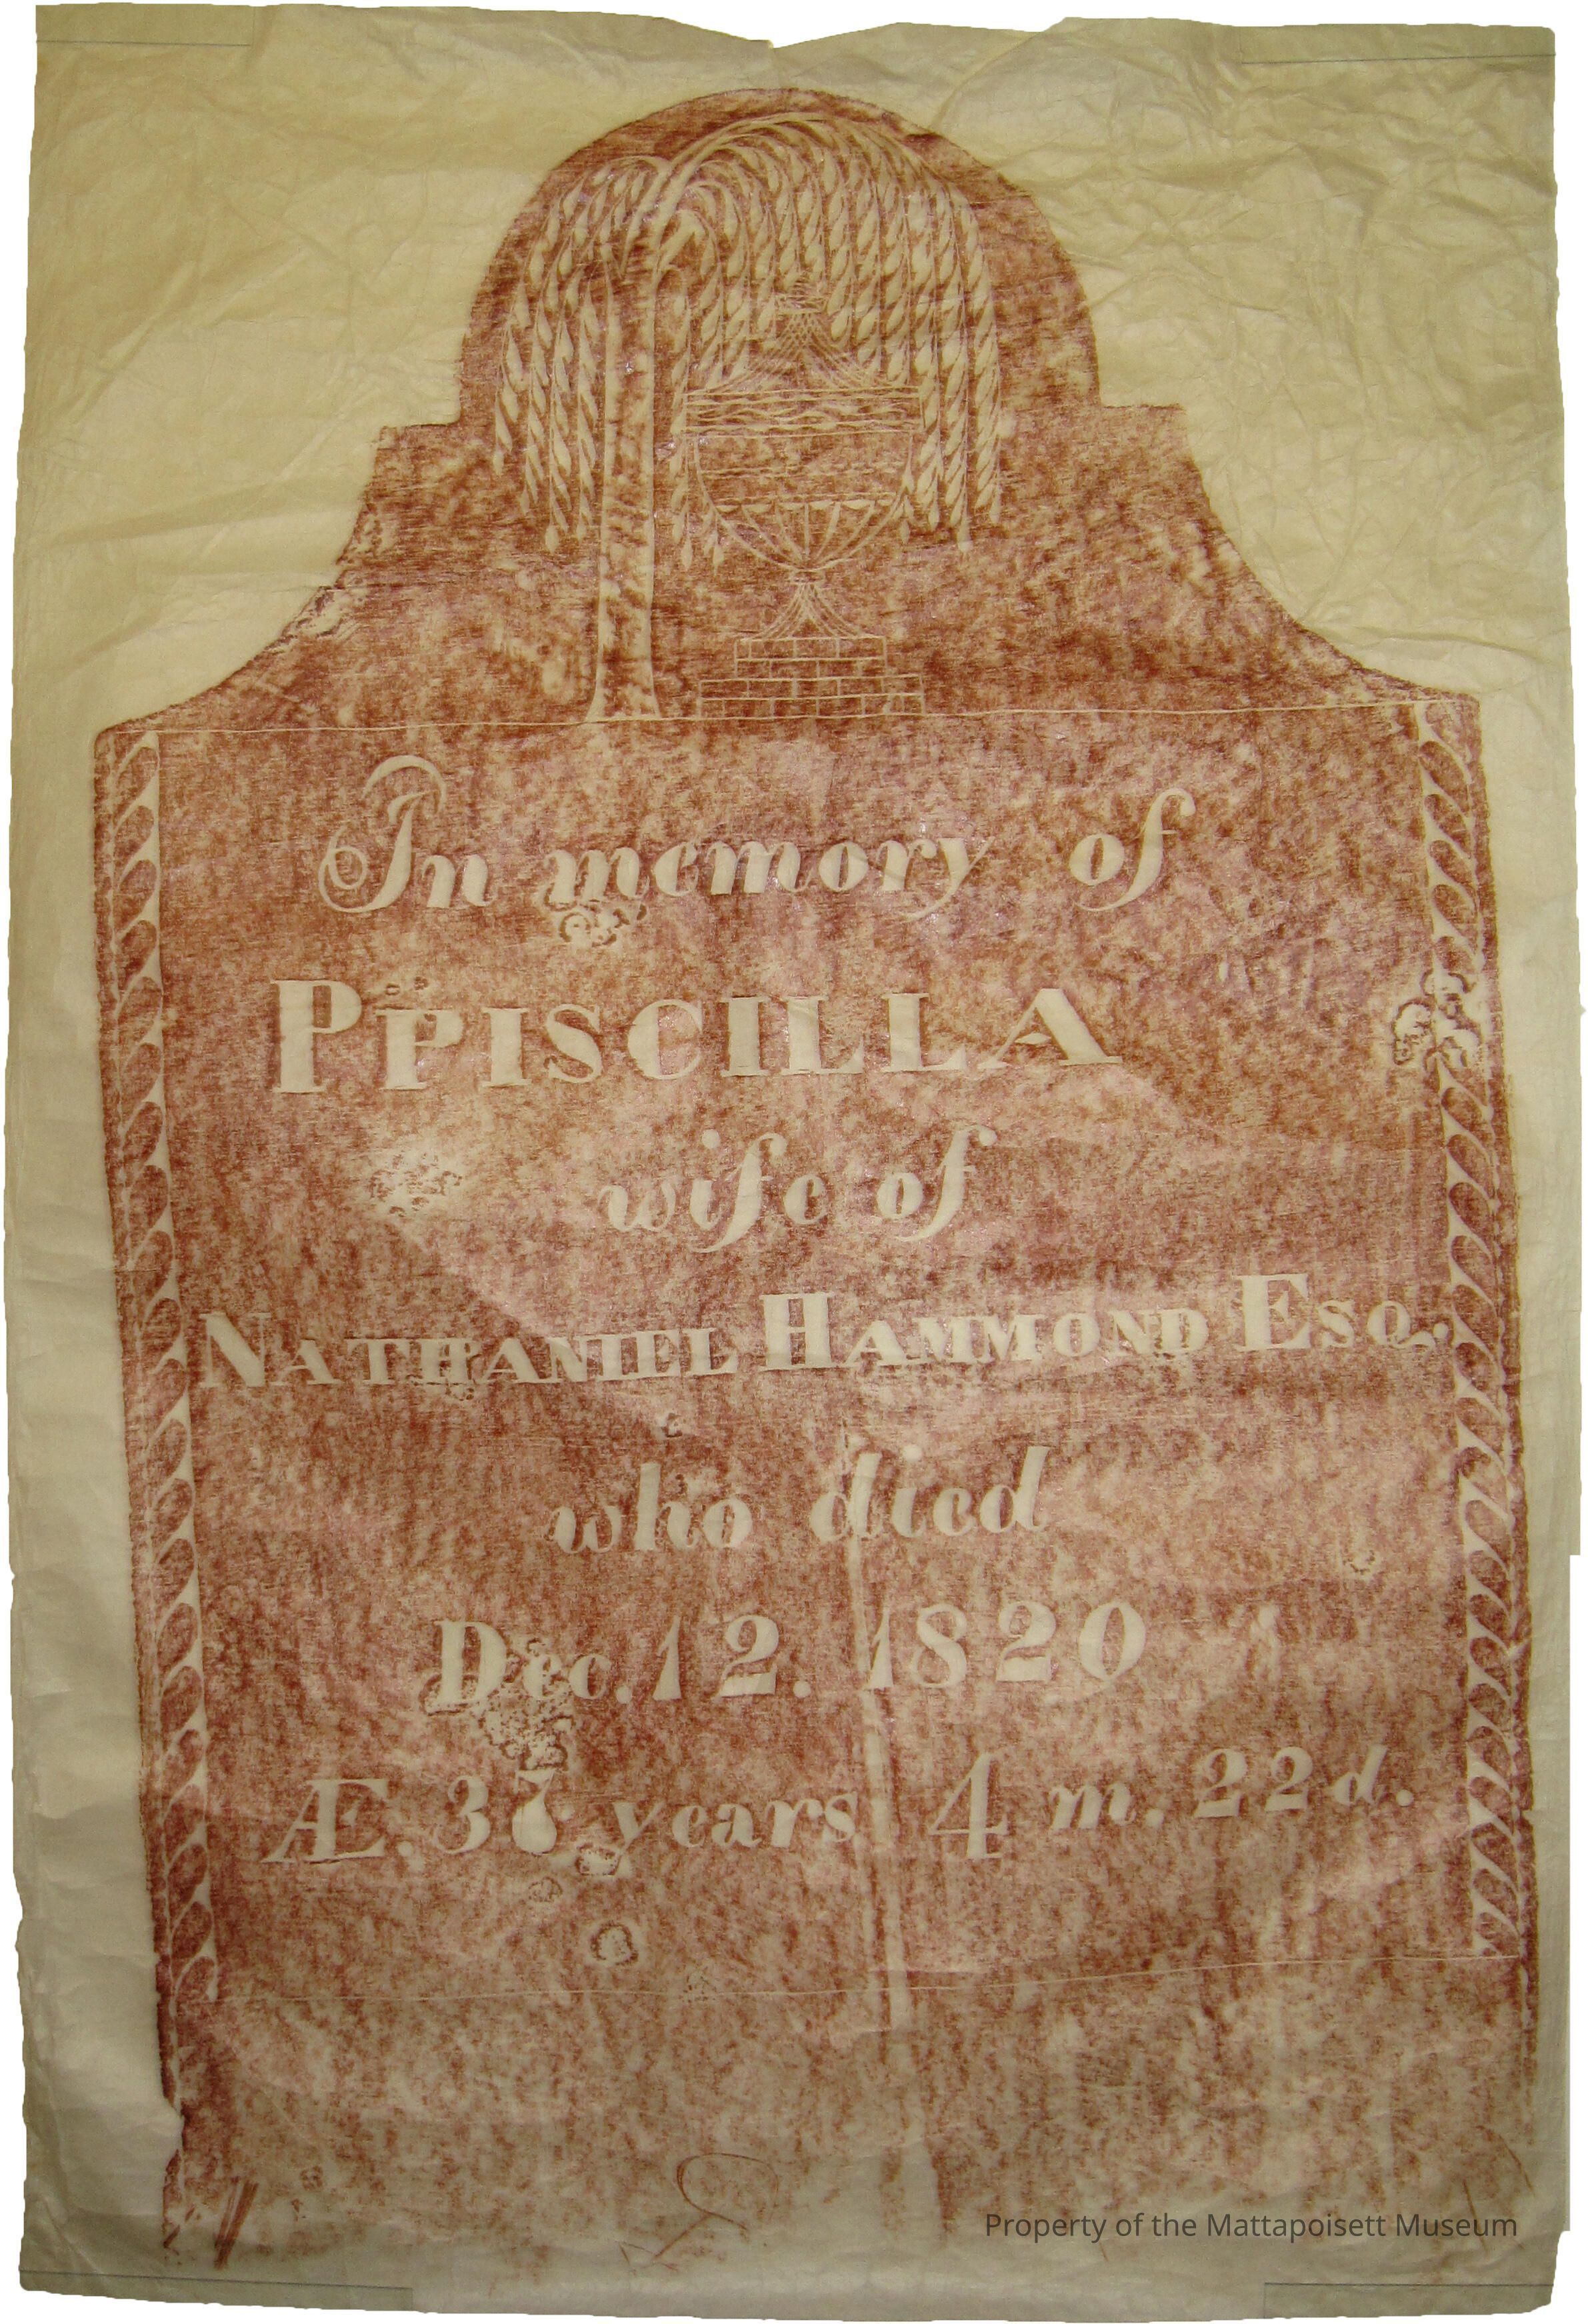 In memory of
PPISCILLA
wife of
NATHANIEL HAMMOND ESQ.
who died
Dec. 12. 1820
Æ. 37 years 4 m. 22 d.
Property of the Mattapoisett Museum